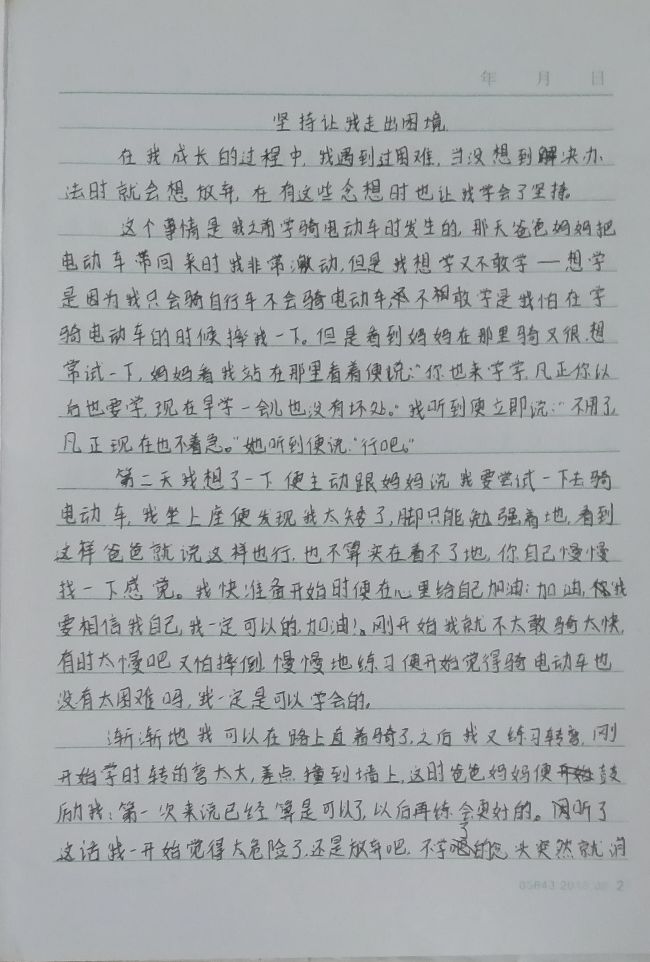 年 月 日
坚持让我走出困境
在我成长的过程中,我遇到过困难,当没想到解决办
法时就会想放弃,在有这些念想时也让我学会了坚持。
这个事情是我之前学骑电动车时发生的,那天爸爸妈妈把
电动车带回来时我非常激动,但是我想学又不敢学——想学
是因为我只会骑自行车不会骑电动车,不敢学是我怕在学
骑电动车的时候摔我一下。但是看到妈妈在那里骑又很想
常试一下,妈妈看我站在那里看着便说:"你也来学学,凡正你以
后也要学,现在早学一会儿也没有坏处。"我听到便立即说:"不用了,
凡正现在也不着急。"她听到便说"行吧。"
第二天我想了一下便主动跟妈妈说我要尝试一下去骑
电动车,我坐上座便发现我太矮了,脚只能勉强着地,看到
这样爸爸就说这样也行,也不算实在着不了地,你自己慢慢
找一下感觉。我快准备开始时便在心里给自己加油:加油,我
要相信我自己,我一定可以的,加油!。刚开始我就不太敢骑太快,
有时太慢吧又怕摔倒,慢慢地练习便开始觉得骑电动车也
没有太困难吗,我一定是可以学会的。
渐渐地我可以在路上直着骑了,之后我又练习转弯,刚
开始学时转的弯太大,差点撞到墙上,这时爸爸妈妈便鼓
励我:第一次来说已经算是可以了,以后再练会更好的。因听了
这话我一开始觉得太危险了,还是放弃吧,不学了的念头突然就消
05643 2